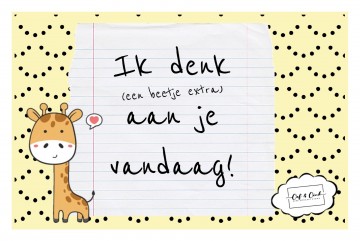 Ik denk
(een beetje extra)
aan je
vandaag!